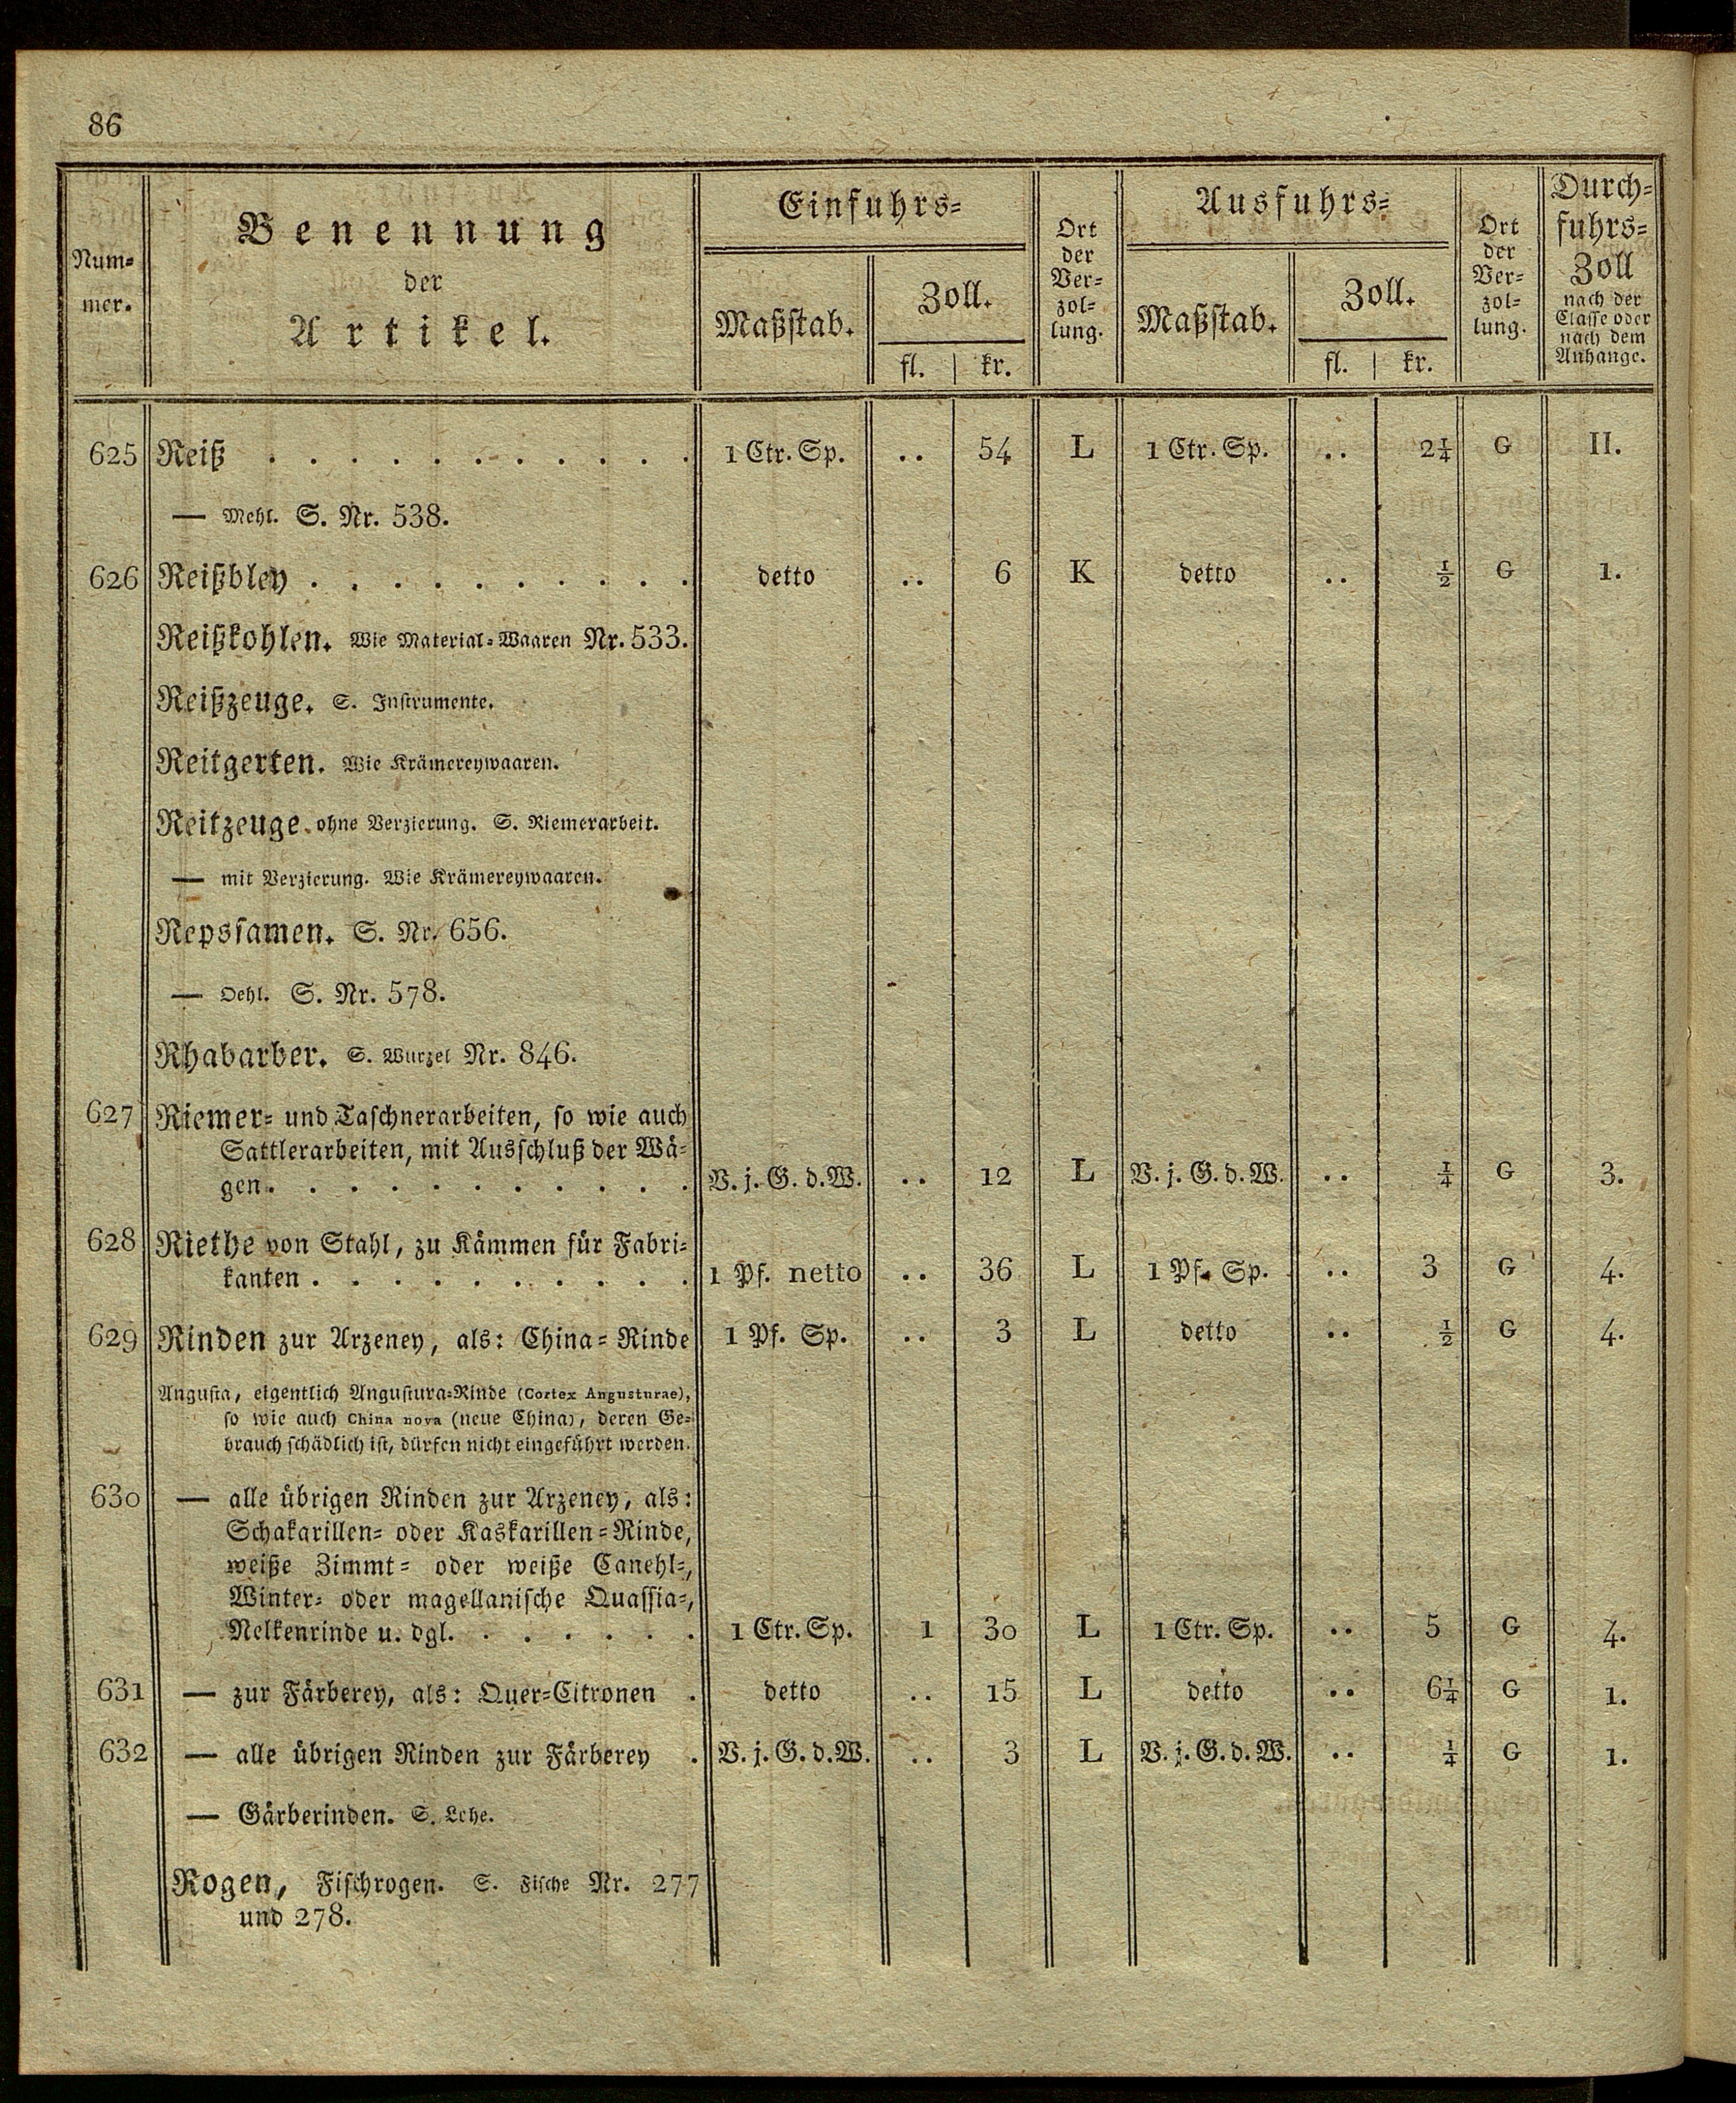 86
Num-
mer.
Benennung
der
Artikel.
Einfuhrs-
Maßstab.
Zoll.
fl. | kr.
Ort
der
Ver-
zol-
lung.
Ausfuhrs-
Maßstab.
Zoll.
fl. | kr.
Ort
der
Ver-
zol-
lung.
Durch-
fuhrs-
Zoll
nach der
Classe oder
nach dem
Anhange.
625 Reiß . . . . . . . . . . . 1 Ctr. Sp. .. 54 L 1 Ctr. Sp. .. 2¼ G II.
— Mehl. S. Nr. 538.
626 Reißbley . . . . . . . . . . detto .. 6 K detto .. ½ G 1.
Reißkohlen. Wie Material-Waaren Nr. 533.
Reißzeuge. S. Instrumente.
Reitgerten. Wie Krämereywaaren.
Reitzeuge. ohne Verzierung. S. Riemerarbeit.
— mit Verzierung. Wie Krämereywaaren.
Repssamen. S. Nr. 656.
— Oehl. S. Nr. 578.
Rhabarber. S. Wurzel Nr. 846.
627 Riemer- und Taschnerarbeiten, so wie auch
Sattlerarbeiten, mit Ausschluß der Wä-
gen . . . . . . . . . . . V. j. G. d. W. .. 12 L V. j. G. d. W. .. ¼ G 3.
628 Riethe von Stahl, zu Kämmen für Fabri-
kanten . . . . . . . . . . 1 Pf. netto .. 36 L 1 Pf. Sp. .. 3 G 4.
629 Rinden zur Arzeney, als: China-Rinde 1 Pf. Sp. .. 3 L detto .. ½ G 4.
Angusta, eigentlich Angustura-Rinde (Cortex Angusturae),
so wie auch China nova (neue China), deren Ge-
brauch schädlich ist, dürfen nicht eingeführt werden.
630 — alle übrigen Rinden zur Arzeney, als:
Schakarillen- oder Kaskarillen-Rinde,
weiße Zimmt- oder weiße Canehl-,
Winter- oder magellanische Quassia-,
Nelkenrinde u. dgl. . . . . . . 1 Ctr. Sp. 1 30 L 1 Ctr. Sp. .. 5 G 4.
631 — zur Färberey, als: Quer-Citronen . detto .. 15 L detto .. 6¼ G 1.
632 — alle übrigen Rinden zur Färberey . V. j. G. d. W. .. 3 L V. j. G. d. W. .. ¼ G 1.
— Gärberinden. S. Lohe.
Rogen, Fischrogen. S. Fische Nr. 277
und 278.